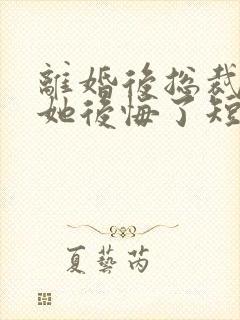 離婚後總裁
她後悔了短
夏藝芮